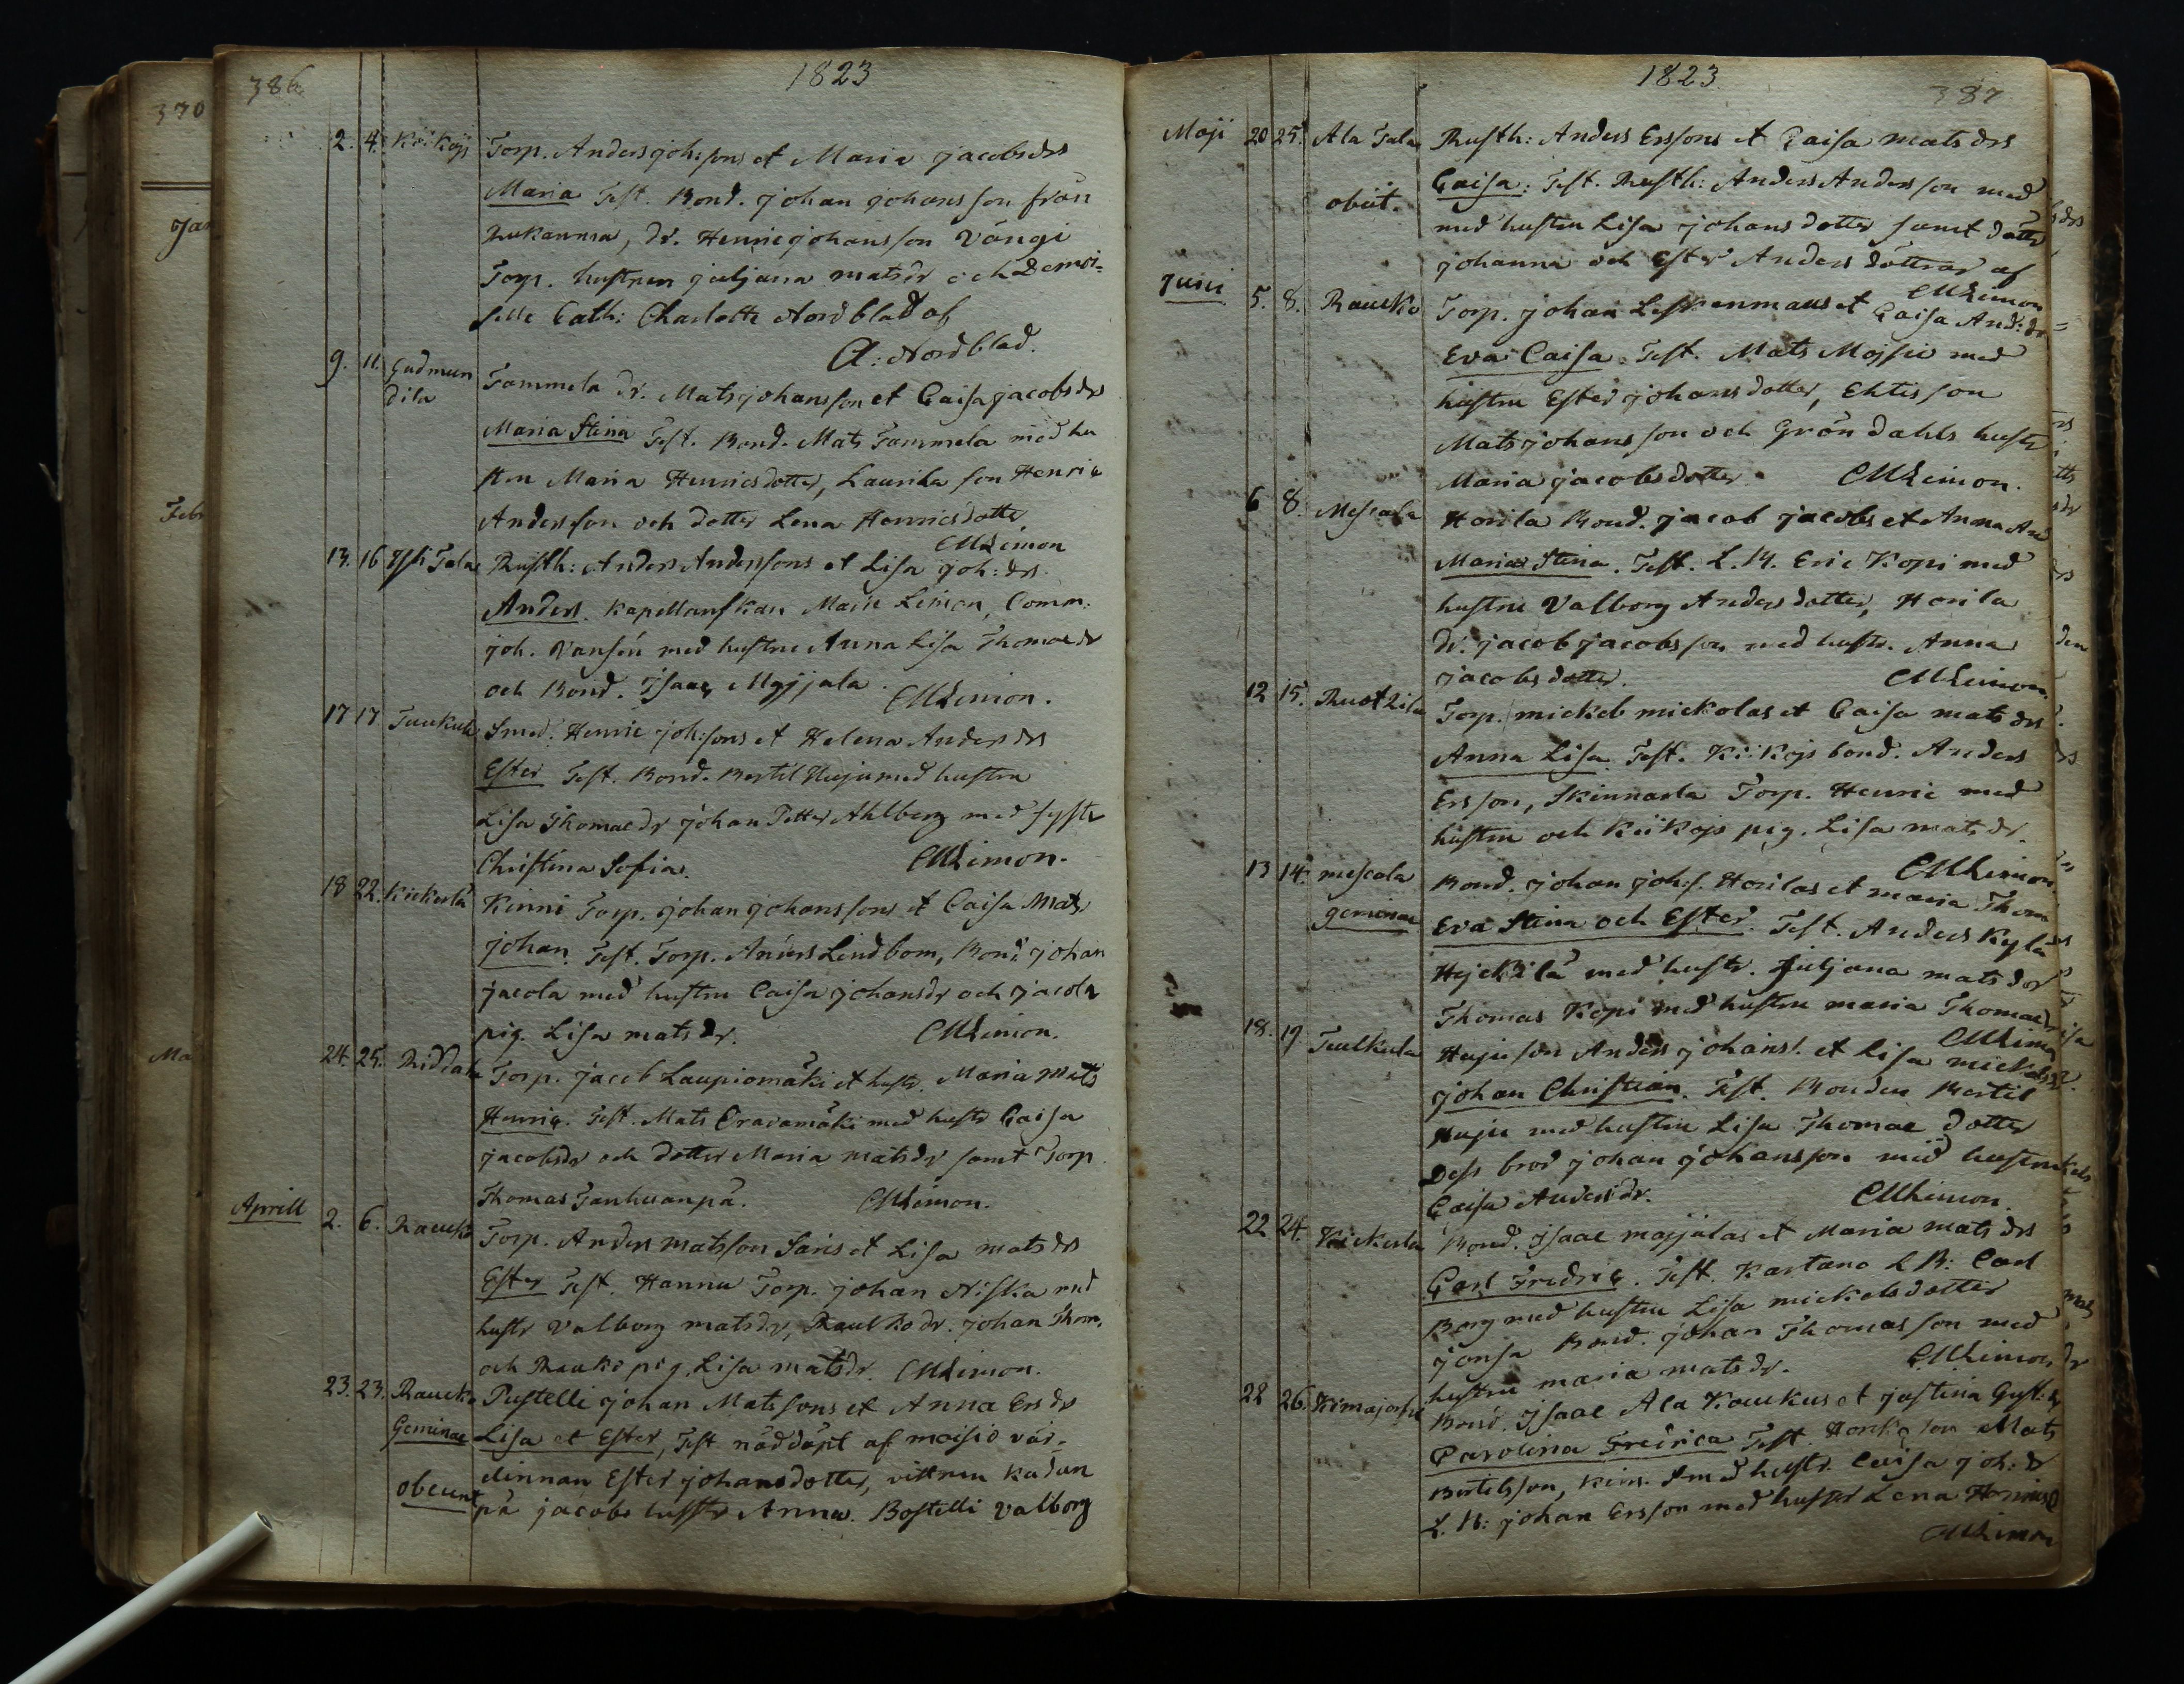 370
Jan
Febr
Ma
386.
1823
2. 4. Kiikojs Torp. Anders Joh:sons et Maria Jacobsdrs
Maria Test. Bond. Johan Johansson från
Rukanma, Dr. Henric Johansson Vängi
Torp. hustrun Juljana matsdr och Demoi-
selle Cath: Charlotte Nordblad af
A: Nordblad.
9. 11. Gudmun
dila
Tammela dr. Mats Johansson et Caisa Jacobsdrs
Maria Stina Test. Bond. Mats Tammela med hu
stru Maria Henricsdotter, Laurila son Henric
Andersson och dotter Lena Henricsdotter
CMLimon
13. 16 Yli Tala Rusth: Anders Anderssons et Lisa Joh: drs.
Anders. Kapellanskan Marie Limon, Comm.
Joh. Vansén med hustru Anna Lisa Thomaedr
och Bond. Isaac Myjjala. CMLimon.
17 17 Tuukula Smed. Henric Joh:sons et Helena Anders drs
Ester Test. Bond. Bertil Huju med hustru
Lisa Thomaedr Johan Petter Ahlberg med syster
Christina Sofia. CMLimon.
18 22. Kiekerla Kinni Torp. Johan Johanssons et Caisa Mats
Johan. Test. Torp. Anders Lindbom, Bond. Johan
Jacola med hustru Caisa Johansdr och Jacola
pig. Lisa matsdr. CMLimon.
24. 25. Riddala Torp. Jacob Laupiomäki et hustr. Maria Mats
Henric. Test. Mats Oravamäki med hustr Caisa
Jacobsdr och dotter Maria matsdr samt Torp
Thomas Tanhuanpä. CMLimon.
Aprill 2. 6. Rauko Torp. Anders Matsson Saris et Lisa mats drs
Ester Test. Hannu Torp. Johan Niska med
hustr Valborg matsdr, Rauko dr. Johan Thom.
och Rauko pig. Lisa matsdr. CMLimon.
23. 23. Rauko Pustelli Johan Matssons et Anna Ersdr
Geminae Lisa et Ester, Test nöddöpt af moisio vär-
dinnan Ester Johansdotter, vittnen Kadan
obeunt pä Jacobs hustr Anna. Bostelli Valborg
1823
387
Maji 20 25. Ala Tala Rusth: Anders Erssons et Caisa mats drs
Caisa: Test. Rusth: Anders Andersson med
obiit. med hustru Lisa Johans dotter samt dotter
Johanna och Ester Anders döttrar af
CMLimon
Juni 5. 8. Rauko Torp. Johan Leskenmaus et Caisa And: dr
Eva Caisa Test. Mats Mojsie med
hustru Ester Johansdotter, Ehtis son
Mats Johansson och Gröndahls hustr
Maria Jacobsdotter CMLimon.
6 8. Mescala Horila Bond. Jacob Jacobs et Anna And
Maria Stina. Test. L.B. Eric Kopi med
hustru Valborg Andersdotter, Horila
dr. Jacob Jacobsson med hustr. Anna
Jacobsdotter. CMLimon.
12 15. Ruotzila Torp. mickel mickolas et Caisa mats drs
Anna Lisa. Test. Kiikojs bond. Anders
Ersson, Skinnarla Torp. Henric med
hustru och Kiikojs pig. Lisa matsdr.
CMLimon
13 14. mescala Bond. Johan Joh:s. Horilas et maria Thom
geminae Eva Stina och Ester. Test. Anders Kylä
Hejckilä med hustr. Juljana matsdor
Thomas Kopi med hustru maria Thomaedr
CMLimon
18. 19 Tuulkula Huju son Anders Johans. et Lisa mickelsdr.
Johan Christian. Test. Bonden Bertil
Huju med hustru Lisa Thomae dotter
Dess brod Johan Johansson med hustru
Caisa Andersdr. CMLimon.
22 24. Kiekerla Bond. Isaac majjalas et Maria mats drs
Carl Fredric. Test. Kartano L B: Carl
Borg med hustru Lisa mickelsdotter
Jonsa Bond. Johan Thomasson med
hustru maria matsdr. CMLimon
28 26. Bond. Isaac Ala Koukus et Justina Gust:dr
Carolina Fredrica Test. Honko son Mats
Bertilsson, Kim. Smed hustr. Caisa Joh:dr
L.B: Johan Ersson med hustr Lena Henricsd
CMLimon